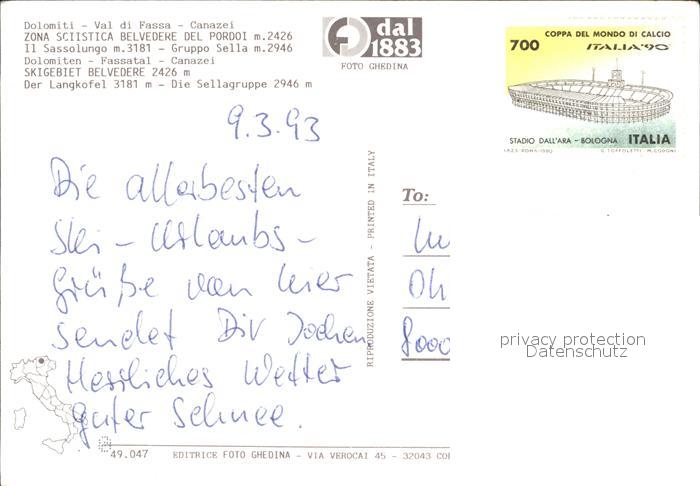 Dolomiti - Val di Fassa - Canazei
ZONA SCIISTICA BELVEDERE DEL PORDOI m.2426
Il Sassolungo m.3181 - Gruppo Sella m.2946
Dolomiten - Fassatal - Canazei
SKIGEBIET BELVEDERE 2426 m
Der Langkofel 3181 m - Die Sellagruppe 2946 m
dal
1883
FOTO GHEDINA
COPPA DEL MONDO DI CALCIO
700 ITALIA'90
STADIO DALL'ARA - BOLOGNA ITALIA
I.P.Z.S. ROMA - 1990 C. TOFFOLETTI - M. CODONI
9.3.93
Die allerbesten
Ski-Urlaubs-
Grüße von hier
sendet Dir Jochen,
Herrliches Wetter
guter Schnee.
RIPRODUZIONE VIETATA - PRINTED IN ITALY
To:
Oh
8000
privacy protection
Datenschutz
49.047 EDITRICE FOTO GHEDINA - VIA VEROCAI 45 - 32043 COR